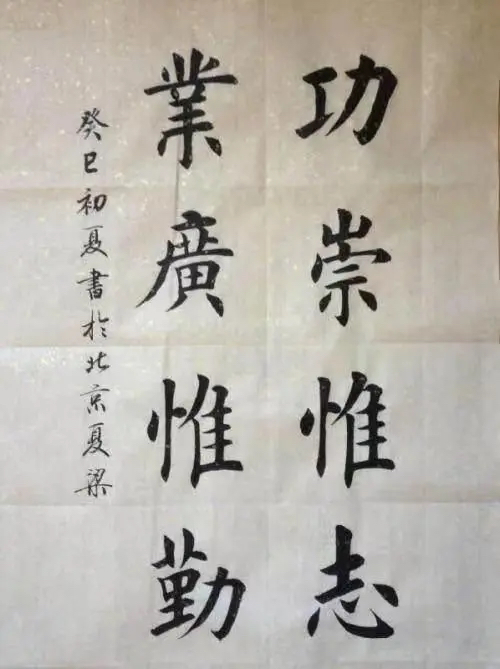 功崇惟志
業廣惟勤
癸巳初夏書於北京夏梁